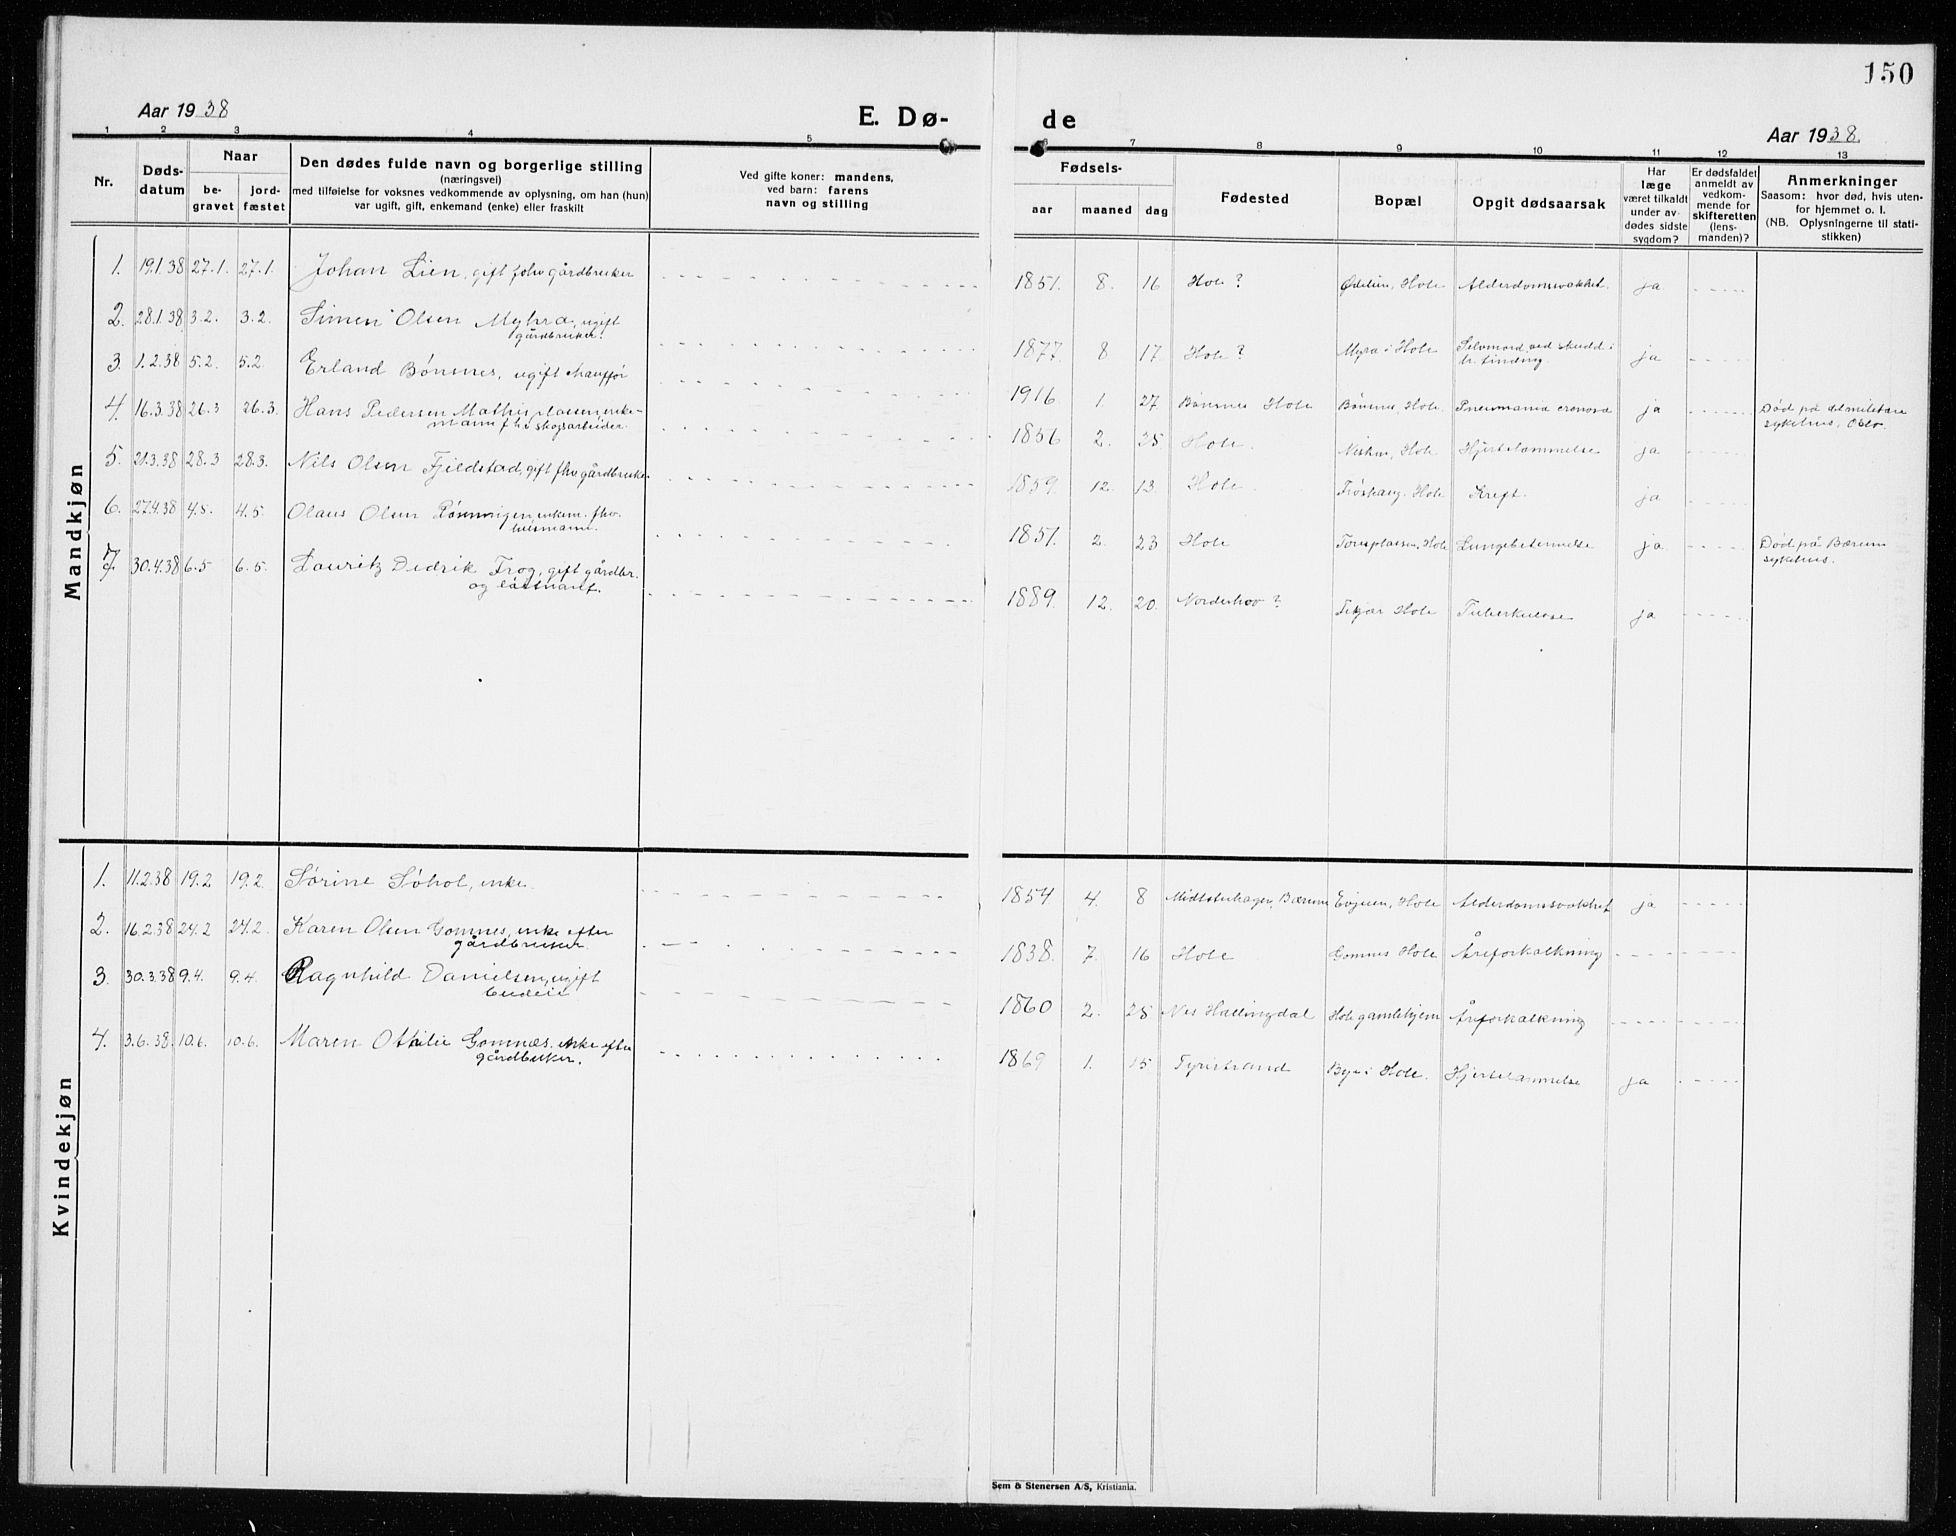 150
Aar 1938
E. Dø-
de
Aar 1938.
1 2 3 4 5 6 7 8 9 10 11 12 13
Nr.
Døds-
datum
Naar
be-
gravet
jord-
fæstet
Den dødes fulde navn og borgerlige stilling
(næringsvei)
med tilføielse for voksnes vedkommende av oplysning, om han (hun)
var ugift, gift, enkemand (enke) eller fraskilt
Ved gifte koner: mandens,
ved barn: farens
navn og stilling
Fødsels-
aar maaned dag
Fødested
Bopæl
Opgit dødsaarsak
Har
læge
været tilkaldt
under av-
dødes sidste
sygdom?
Er dødsfaldet
anmeldt av
vedkom-
mende for
skifteretten
(lens-
manden)?
Anmerkninger
Saasom: hvor død, hvis uten-
for hjemmet o. l.
(NB. Oplysningerne til stati-
stikken)
Mandkjøn
1. 19.1.38 27.1. 27.1. Johan Lien, gift fhv gårdbruker 1851. 8. 16 Hole? Hole Alderdomssvakhet. ja
2. 28.1.38 3.2. 3.2. Simen Olsen Myhra, ugift
gårdbruker. 1877. 8 17 Hole? Myra i Hole Selvmord ved skudd i
tinding. ja
3. 1.2.38 5.2. 5.2. Erland Bønsnes, ugift chauffør 1916 1. 27 Bønsnes Hole Bønsnes, Hole Pneumonia crouposa ja Død på det militære
sykehus, Oslo.
4. 16.3.38 26.3 26.3. Hans Pedersen Mathisplassen, enke-
mann fhv skogsarbeider. 1856 2. 25 Hole. Hole Hjertelammelse ja
5. 21.3.38 28.3 28.3. Nils Olsen Fjeldstad, gift fhv gårdbruker 1859. 12. 13. Hole. Frøshaug, Hole Kreft. ja
6. 27.4.38 4.5. 4.5. Olaus Olsen Rønningen enkem. fhv.
husmann. 1851. 2. 23 Hole Toresplassen, Hole Lungebetennelse ja Død på Bærum
sykehus.
7. 30.4.38 6.5 6.5. Lauritz Dedrik Frog, gift gårdbr.
og løitnant. 1889. 12. 20. Norderhov? Hole Tuberkulose ja
Kvindekjøn
1. 11.2.38 19.2 19.2. Sørine Søhol, enke. 1854 4. 8 Midtstuhagen, Bærum Evjuen, Hole Alderdomssvakhet ja
2. 16.2.38 24.2 24.2. Karen Olsen Gomnes, enke efter
gårdbruker. 1838. 7. 16 Hole Gomnes Hole Åreforkalkning
3. 30.3.38 9.4. 9.4. Ragnhild Danielsen, ugift
budeie 1860 2. 25 Nes Hallingdal Hole gamlehjem Åreforkalkning
4. 3.6.38. 10.6. 10.6. Maren Othilie Gomnæs. enke efter
gårdbruker. 1869 1. 15 Tyristrand Bye i Hole. Hjertelammelse ja
Sem & Stenersen A/S, Kristiania.